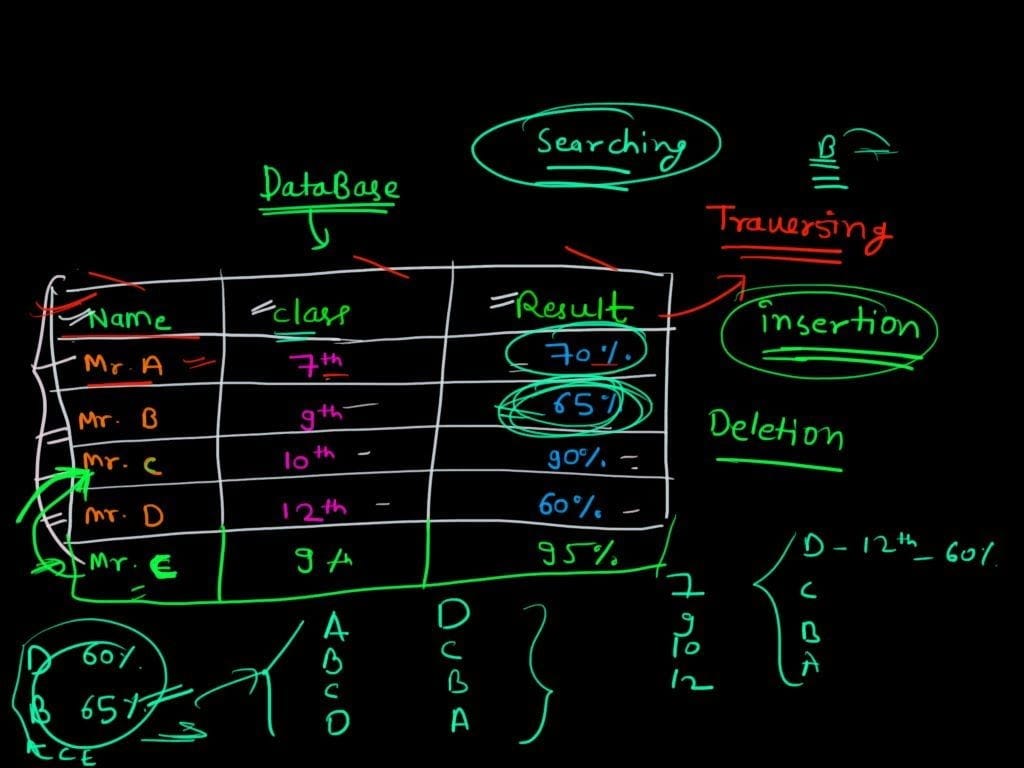 Searching
B
DataBase
Traversing
Name class Result
insertion
Mr. A 7th 70%.
Mr. B 9th 65%
Deletion
Mr. C 10th 90%.
Mr. D 12th 60%.
Mr. E 9th 95%.
D - 12th - 60%.
C
B
A
7
9
10
12
A D
B C
C B
D A
D 60%.
B 65%.